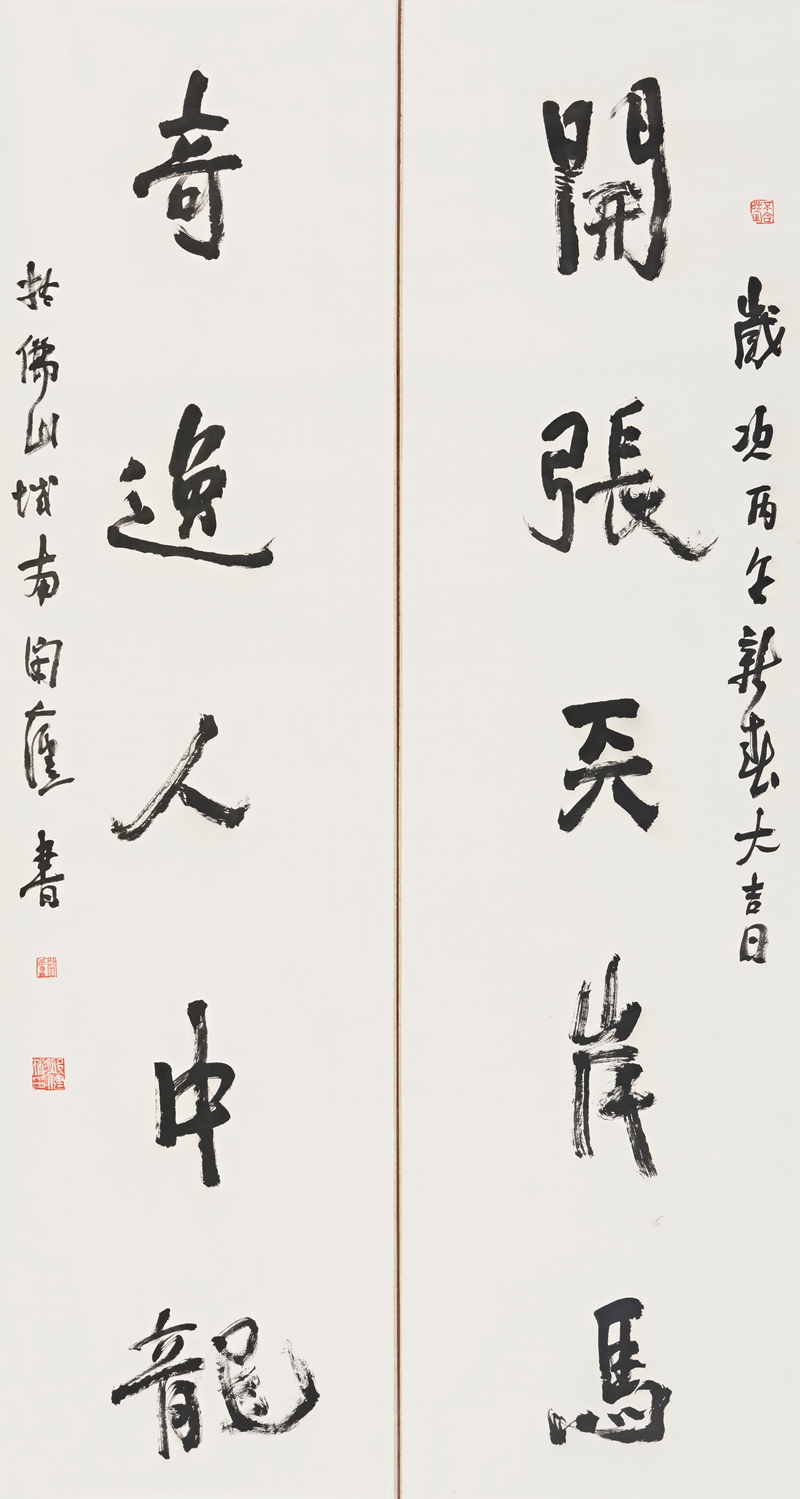 開張天岸馬
歲次丙午新春大吉日
奇逸人中龍
於佛山城南閑廬書